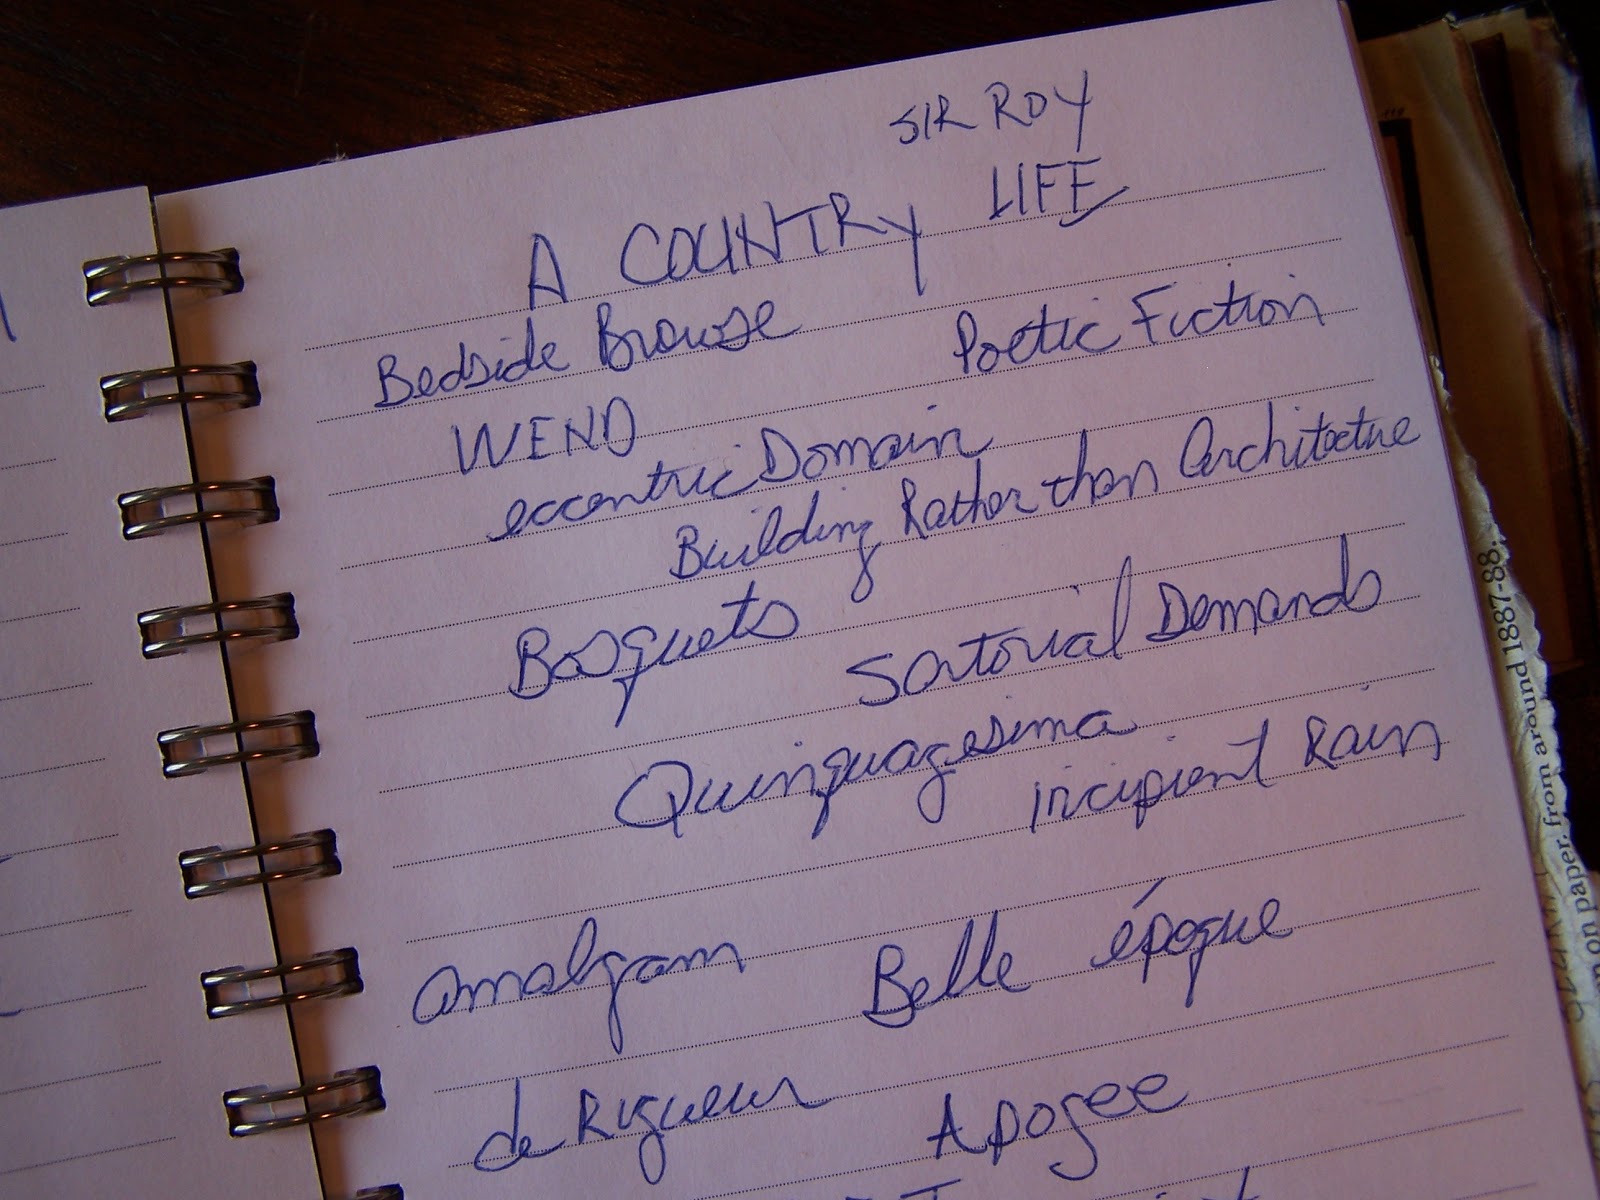 SIR ROY
A COUNTRY LIFE
Bedside Browse
Poetic Fiction
WEND
eccentric Domain
Building Rather than Architectue
Bosquets
Sartorial Demands
Quinquagesima
incipient Rain
amalgam
Belle époque
de Rigueur
Apogee
on paper, from around 1887-88.